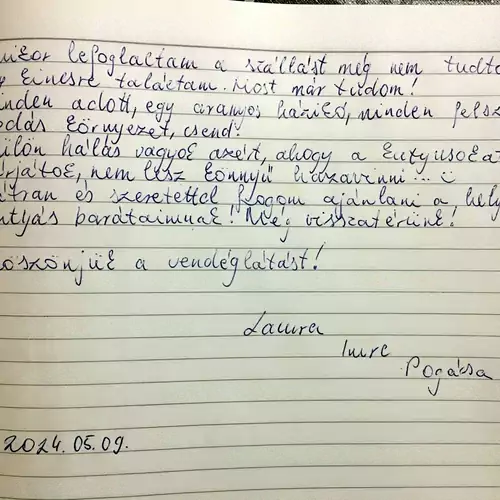 mikor lefoglaltam a szállást még nem tudta
kincsre találtam. Most már tudom!
inden adott, egy aranyos házikó, minden felsz
odás környezet, csend!
ülön hálás vagyok azért, ahogy a kutyusokat
rjátok, nem lesz könnyű hazavinni... ☺
átran és szeretettel fogom ajánlani a hely
utyás barátaimnak! Még visszatérünk!
öszönjük a vendéglátást!
Laura
Imre
Pogácsa
2024.05.09.